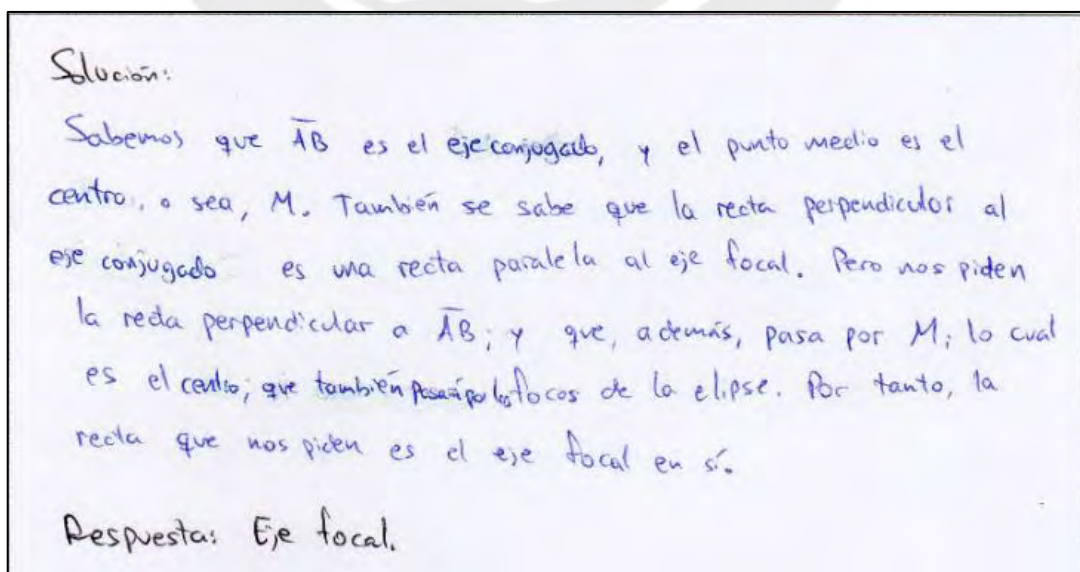 Solución:
Sabemos que AB es el eje conjugado, y el punto medio es el
centro, o sea, M. También se sabe que la recta perpendicular al
eje conjugado es una recta paralela al eje focal. Pero nos piden
la recta perpendicular a AB; y que, además, pasa por M; lo cual
es el centro; que también pasará por los focos de la elipse. Por tanto, la
recta que nos piden es el eje focal en sí.
Respuesta: Eje focal.